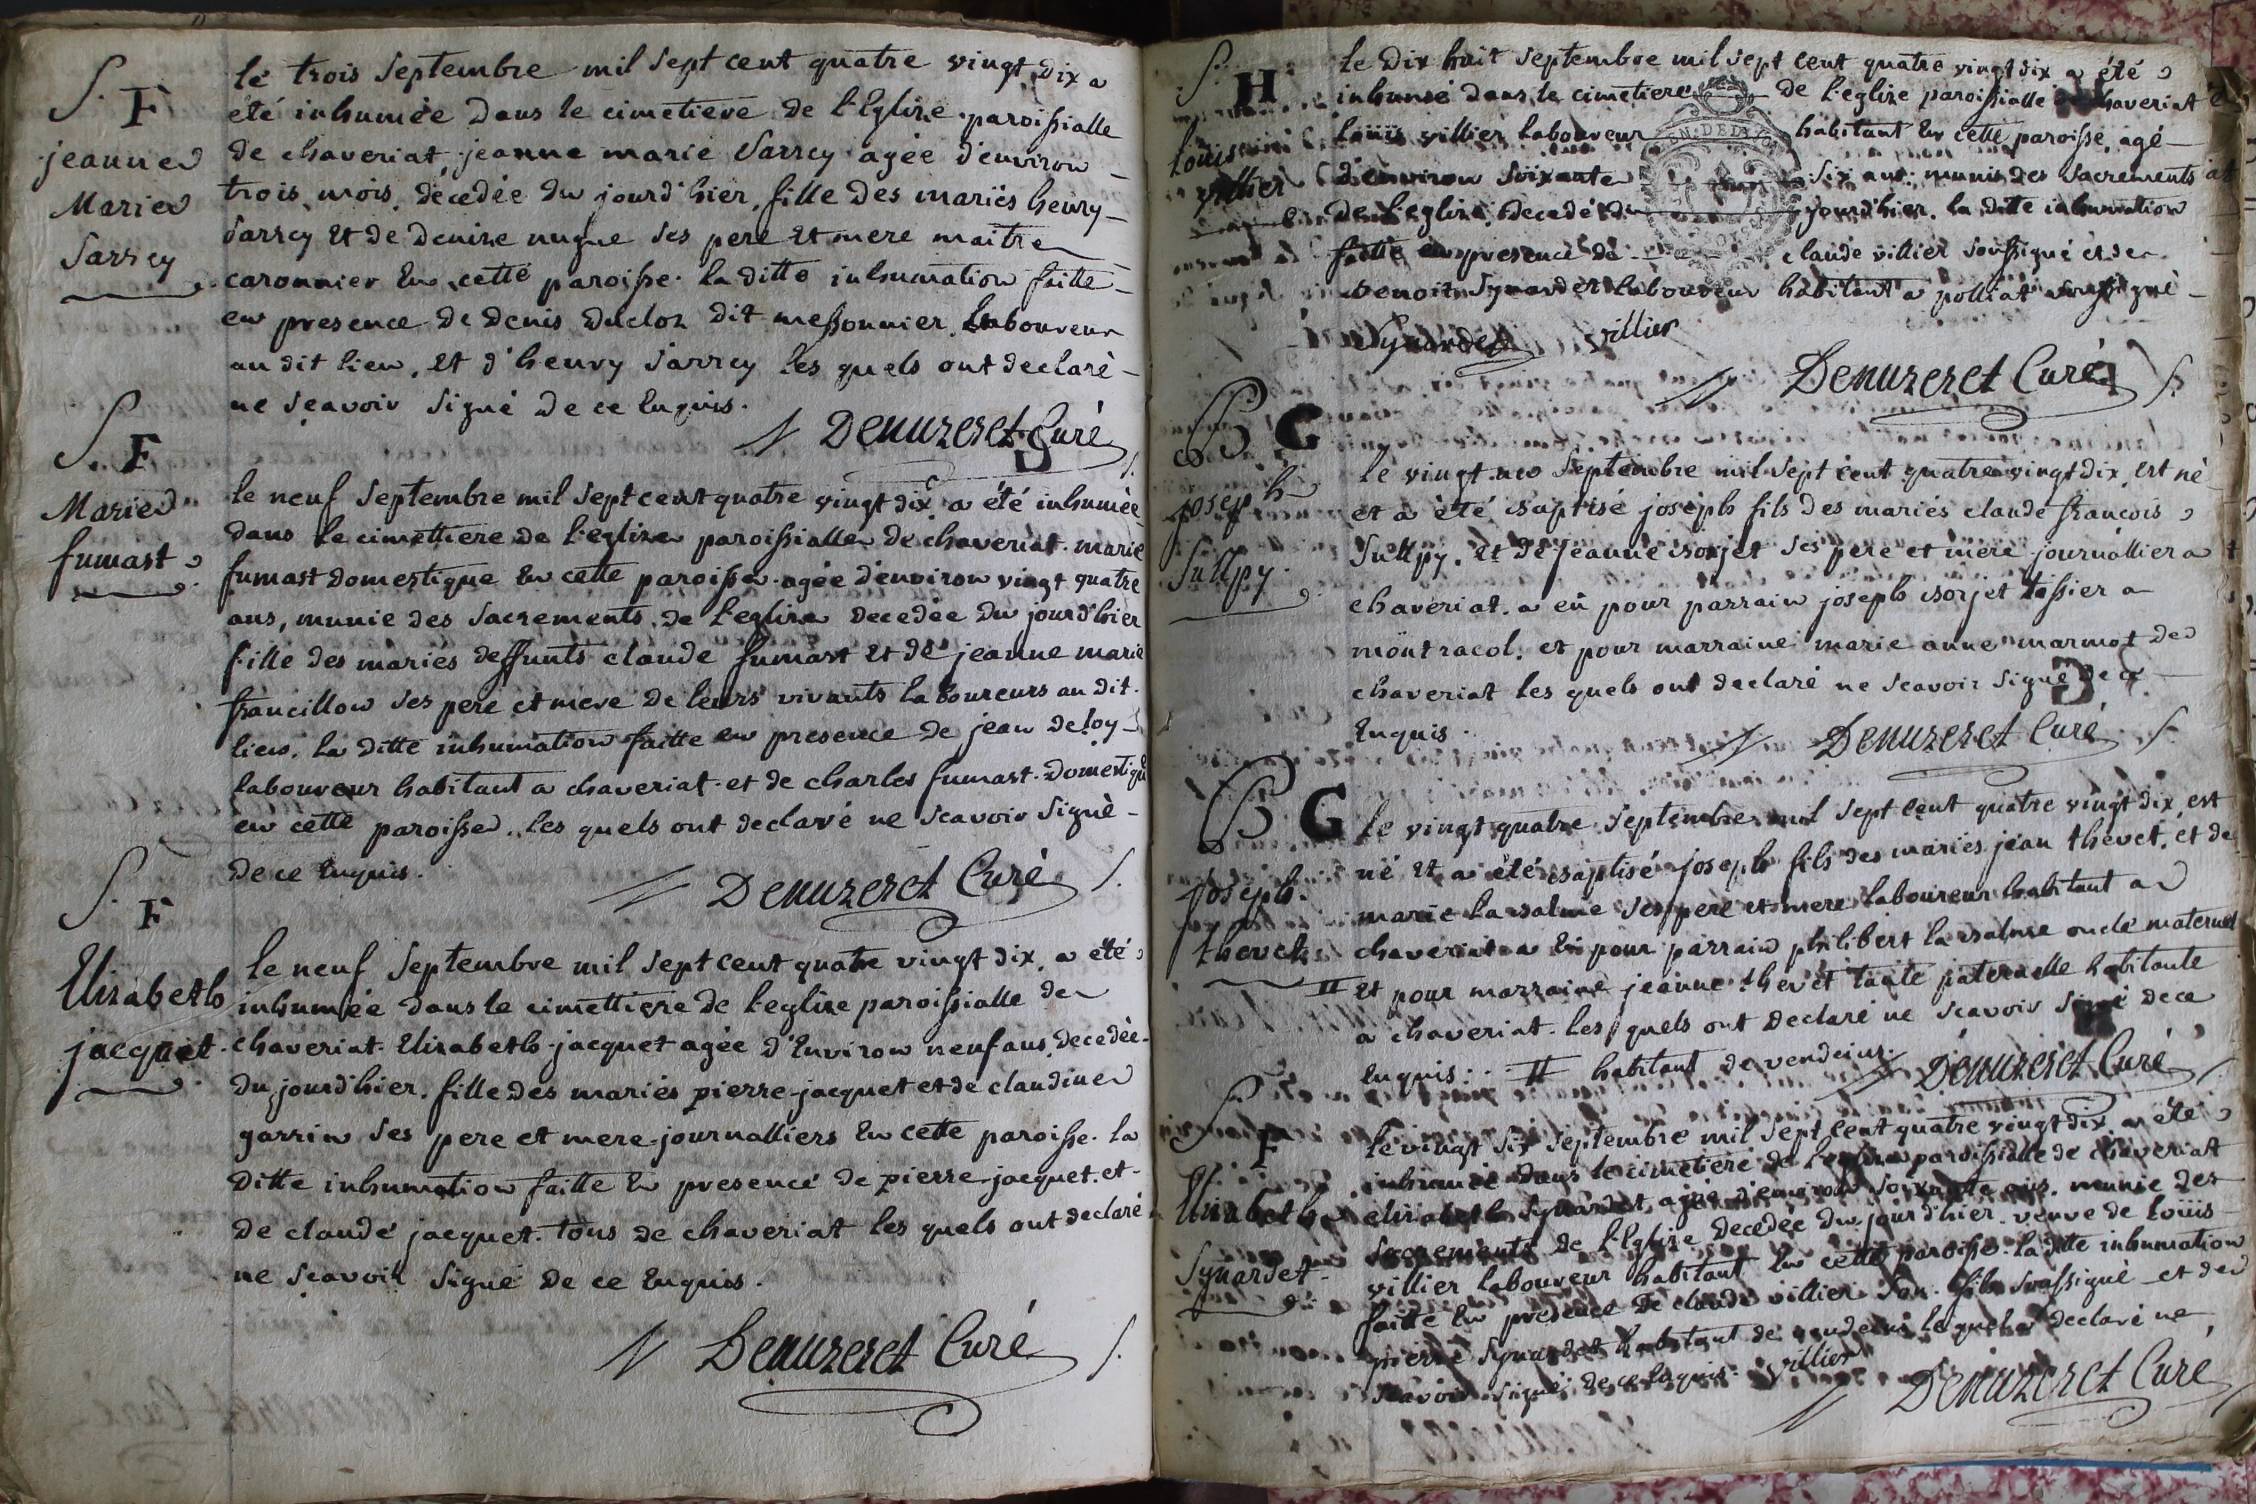 S. F
jeanne
Marie
Sarrey
le trois Septembre mil Sept cent quatre vingt Dix a
été inhumée Dans le cimetiere de l'Eglize paroissialle
de chaveriat jeanne marie Sarrey agée d'environ
trois mois, décedée du jourd'hier, fille des mariés henry
Sarrey et de denize nugue Ses pere et mere maitre
caronnier en cette paroisse. la ditte inhumation faitte
en presence de denis Ducloz dit messonnier laboureur
au dit lieu, et d'henry Sarrey les quels ont declaré
ne Sçavoir Signé de ce Enquis.
Denuzeret Curé
S. F
Marie
fumast
le neuf Septembre mil Sept cent quatre vingt dix a été inhumée
dans le cimettiere de l'eglize paroissialle de chaveriat marie
fumast domestique en cette paroisse agée d'environ vingt quatre
ans, munie des Sacrements de l'eglize decedée du jourd'hier
fille des mariés deffunts claude fumast et de jeanne marie
francillon Ses pere et mere de leurs vivants laboureurs au dit
lieu. la ditte inhumation faitte en presence de jean deloy
laboureur habitant a chaveriat et de charles fumast Domestique
en cette paroisse. les quels ont declaré ne Scavoir Signé
de ce Enquis.
Denuzeret Curé
S. F
Elizabeth
jacquet
le neuf Septembre mil Sept cent quatre vingt dix, a été
inhumée dans le cimettiere de l'eglize paroissialle de
chaveriat Elizabeth jacquet agée d'Environ neuf ans, decedée
du jourd'hier. fille des mariés pierre jacquet et de claudine
garrin Ses pere et mere journalliers En cette paroisse. la
ditte inhumation faitte En presence de pierre jacquet et
de claude jacquet tous de chaveriat les quels ont declaré
ne Scavoir Signé de ce Enquis.
Denuzeret Curé
S. H
Loüis
villier
le Dix huit Septembre mil Sept cent quatre vingt dix a été
inhumé dans le cimetiere de l'eglize paroissialle chaveriat
Loüis villier laboureur habitant En cette paroisse, agé
d'environ Soixante Six ans munis des Sacrements
de l'eglize decedé du jourd'hier. la ditte inhumation
faitte en presence de claude villier Soussigné et de
Benoit Synardet laboureur habitant a polliat Soussigné
Synardet villier
Denuzeret Curé
B G
joseph
Sullpy
le vingt un Septembre mil Sept cent quatre vingt dix, est né
et a été baptisé joseph fils des mariés claude francois
Sullpy. et de jeanne borjet Ses pere et mere journallier a
chaveriat. a eü pour parrain joseph borjet tissier a
montracol. et pour marraine marie anne marmot de
chaveriat les quels ont declaré ne Scavoir Signé de ce
Enquis.
Denuzeret Curé
B G
joseph
thevet
le vingt quatre Septembre mil Sept cent quatre vingt dix, est
né et a été baptisé joseph fils des mariés jean thevet. et de
marie la balme Ses pere et mere laboureur habitant a
chaveriat a Eü pour parrain philibert la balme oncle maternel
et pour marraine jeanne thevet tante paternelle habitante
a chaveriat. les quels ont declaré ne Scavoir Signé de ce
Enquis. habitant de vendeins.
Denuzeret Curé
S. F
Elizabeth
Synardet
le vingt Six Septembre mil Sept cent quatre vingt dix, a été
inhumée dans le cimetiere de l'eglize paroissialle de chaveriat
elizabeth Synardet, agée d'environ Soixante ans. munie des
Sacrements de l'Eglize Decedée du jourd'hier. veuve de Loüis
villier laboureur habitant En cette paroisse. la ditte inhumation
faitte En presence de claude villier Son fils Soussigné et de
pierre Synardet habitant de vendeins lequel a declaré ne
Scavoir Signé de ce Enquis. villier
Denuzeret Curé